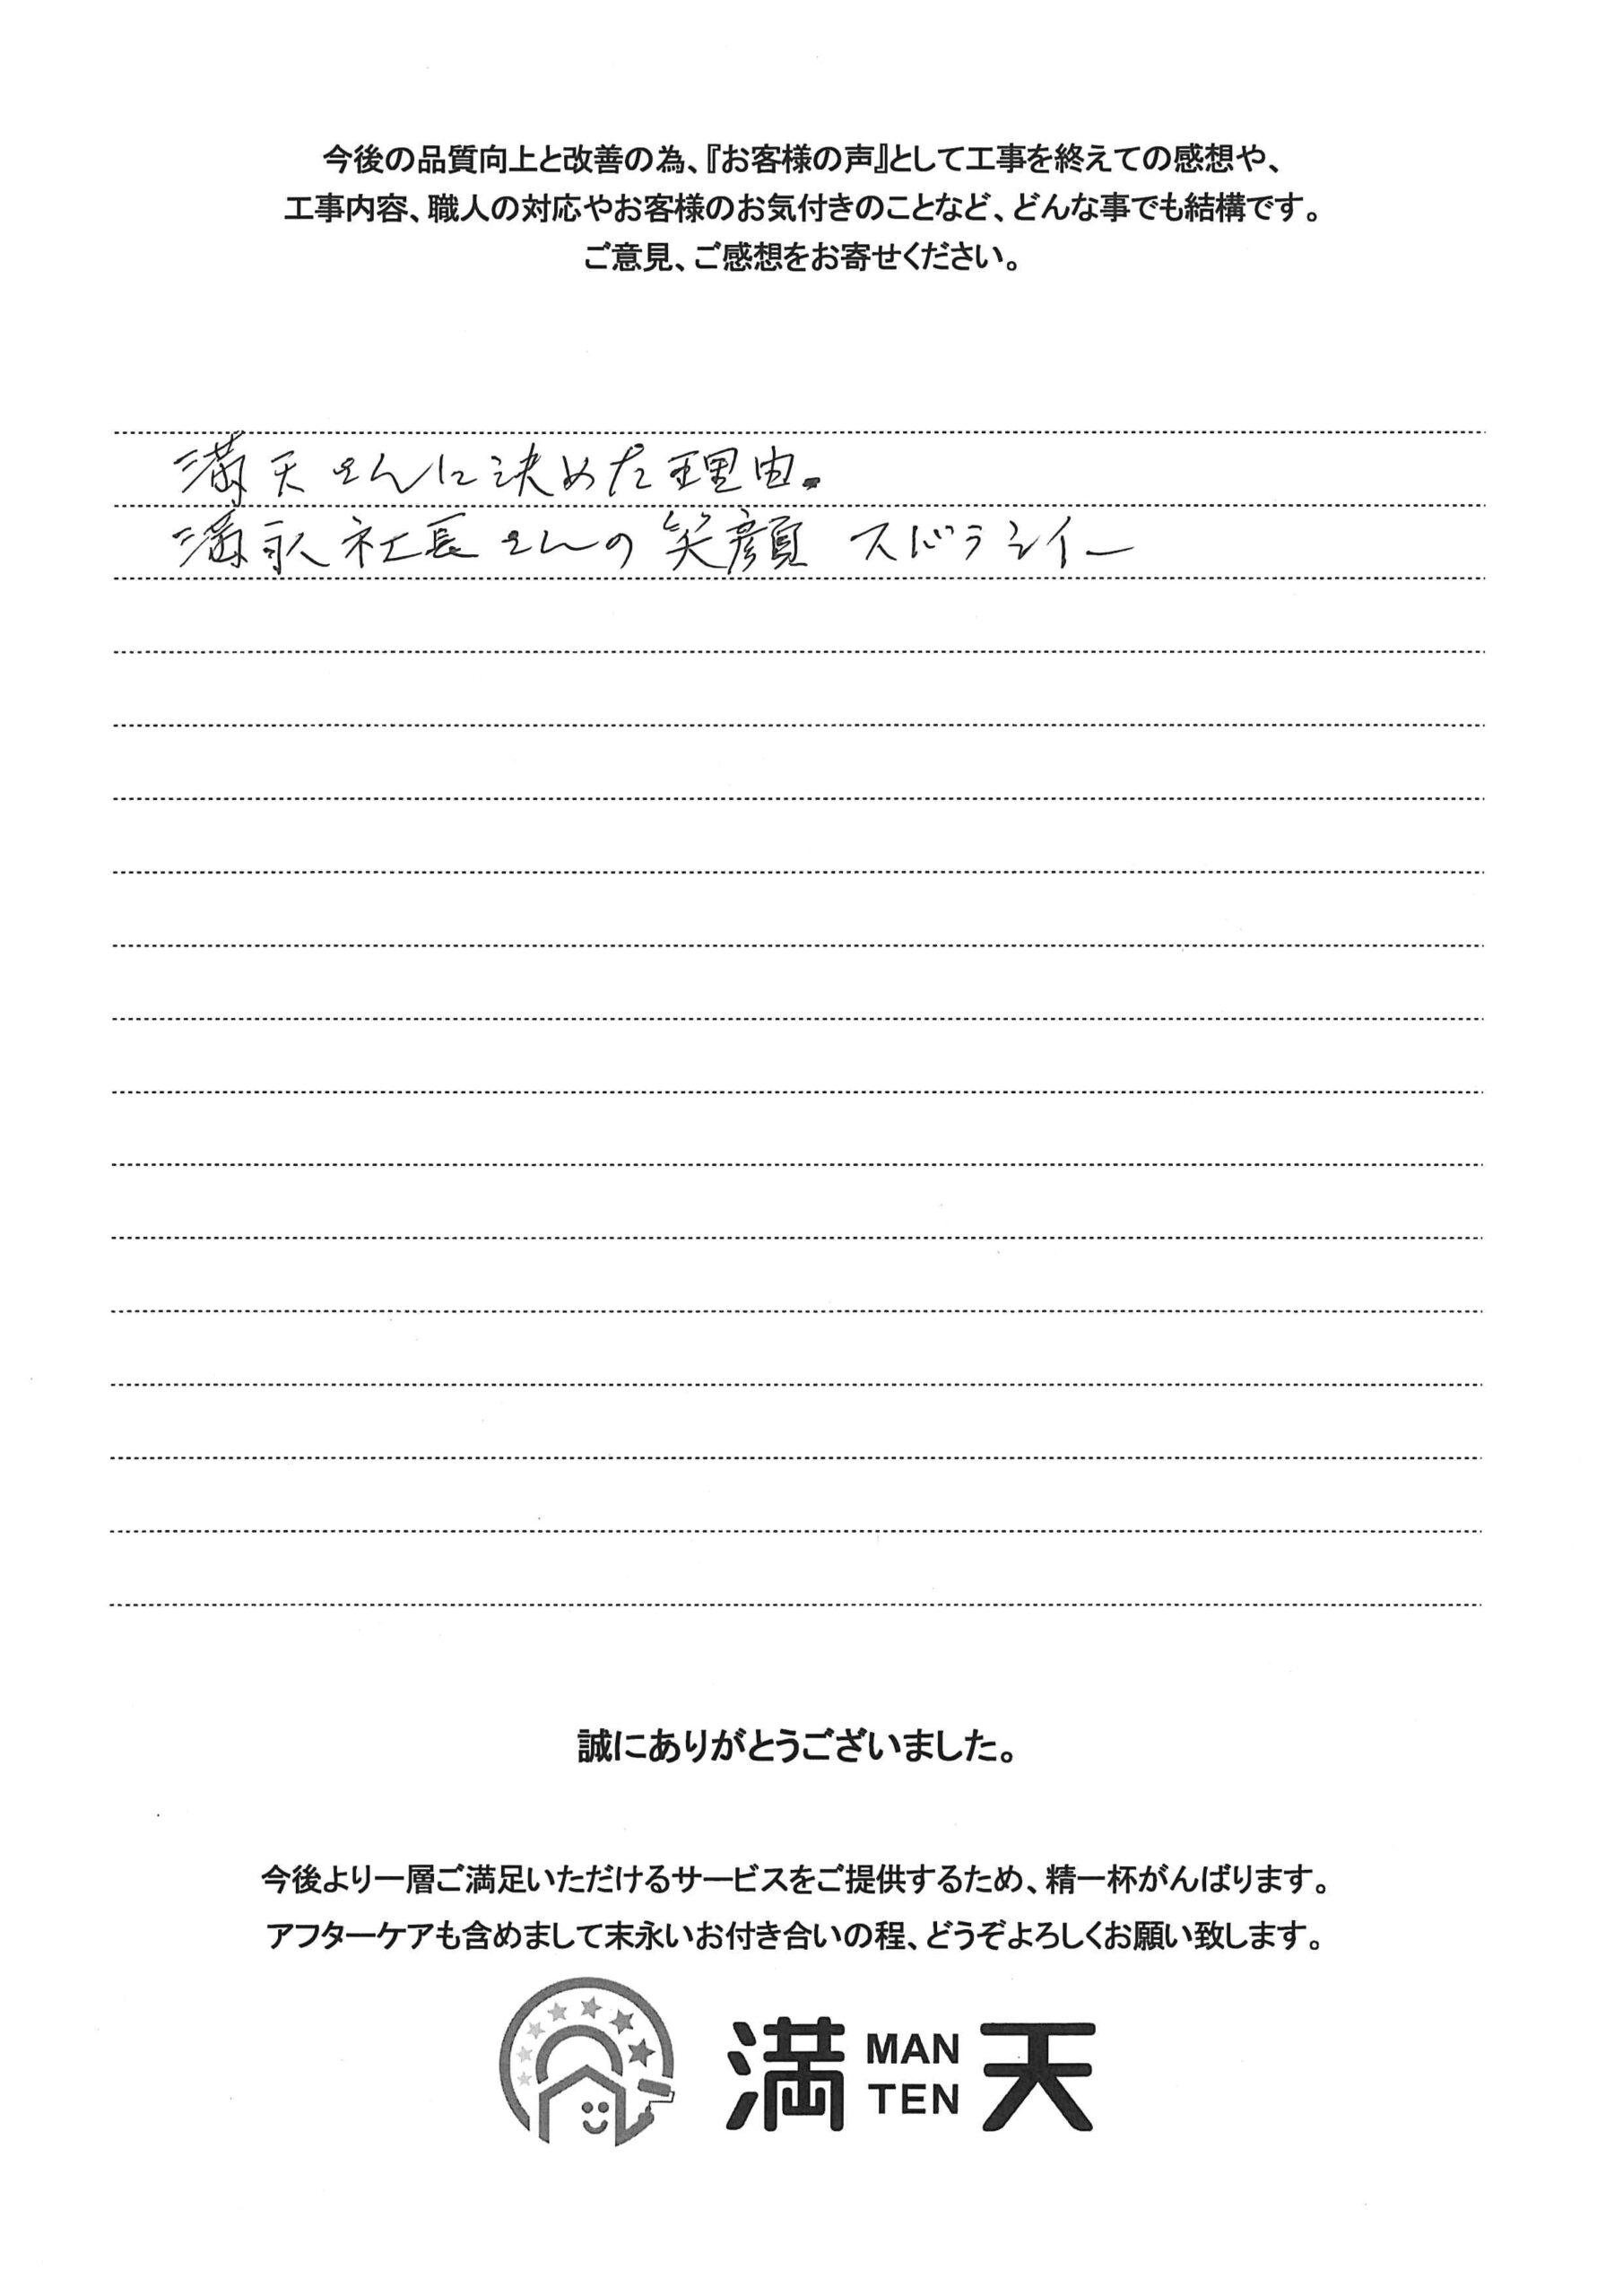 今後の品質向上と改善の為、『お客様の声』として工事を終えての感想や、
工事内容、職人の対応やお客様のお気付きのことなど、どんな事でも結構です。
ご意見、ご感想をお寄せください。
満天さんに決めた理由。
満永社長さんの笑顔 スバラシイー
誠にありがとうございました。
今後より一層ご満足いただけるサービスをご提供するため、精一杯がんばります。
アフターケアも含めまして末永いお付き合いの程、どうぞよろしくお願い致します。
満 MAN TEN 天